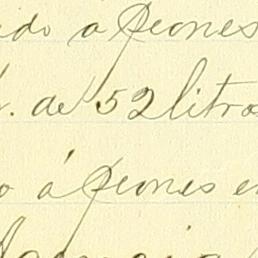 ido a peones
. de 52 litros
o á peones en